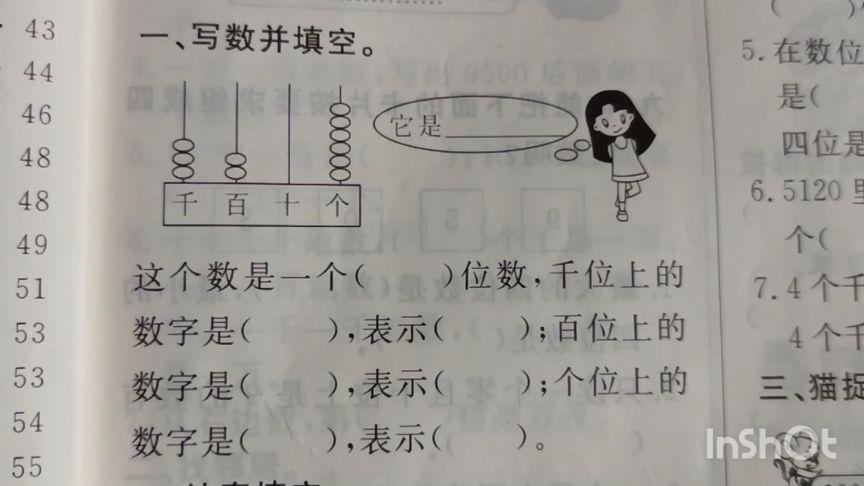 43
44
46
48
48
49
51
53
53
54
55
一、写数并填空。
它是
千 百 十 个
这个数是一个(  )位数,千位上的
数字是(  ),表示(  );百位上的
数字是(  ),表示(  );个位上的
数字是(  ),表示(  )。
5.在数位
是(
四位是
6.5120里
个(
7.4个千
4个千
三、猫捉
InShOt